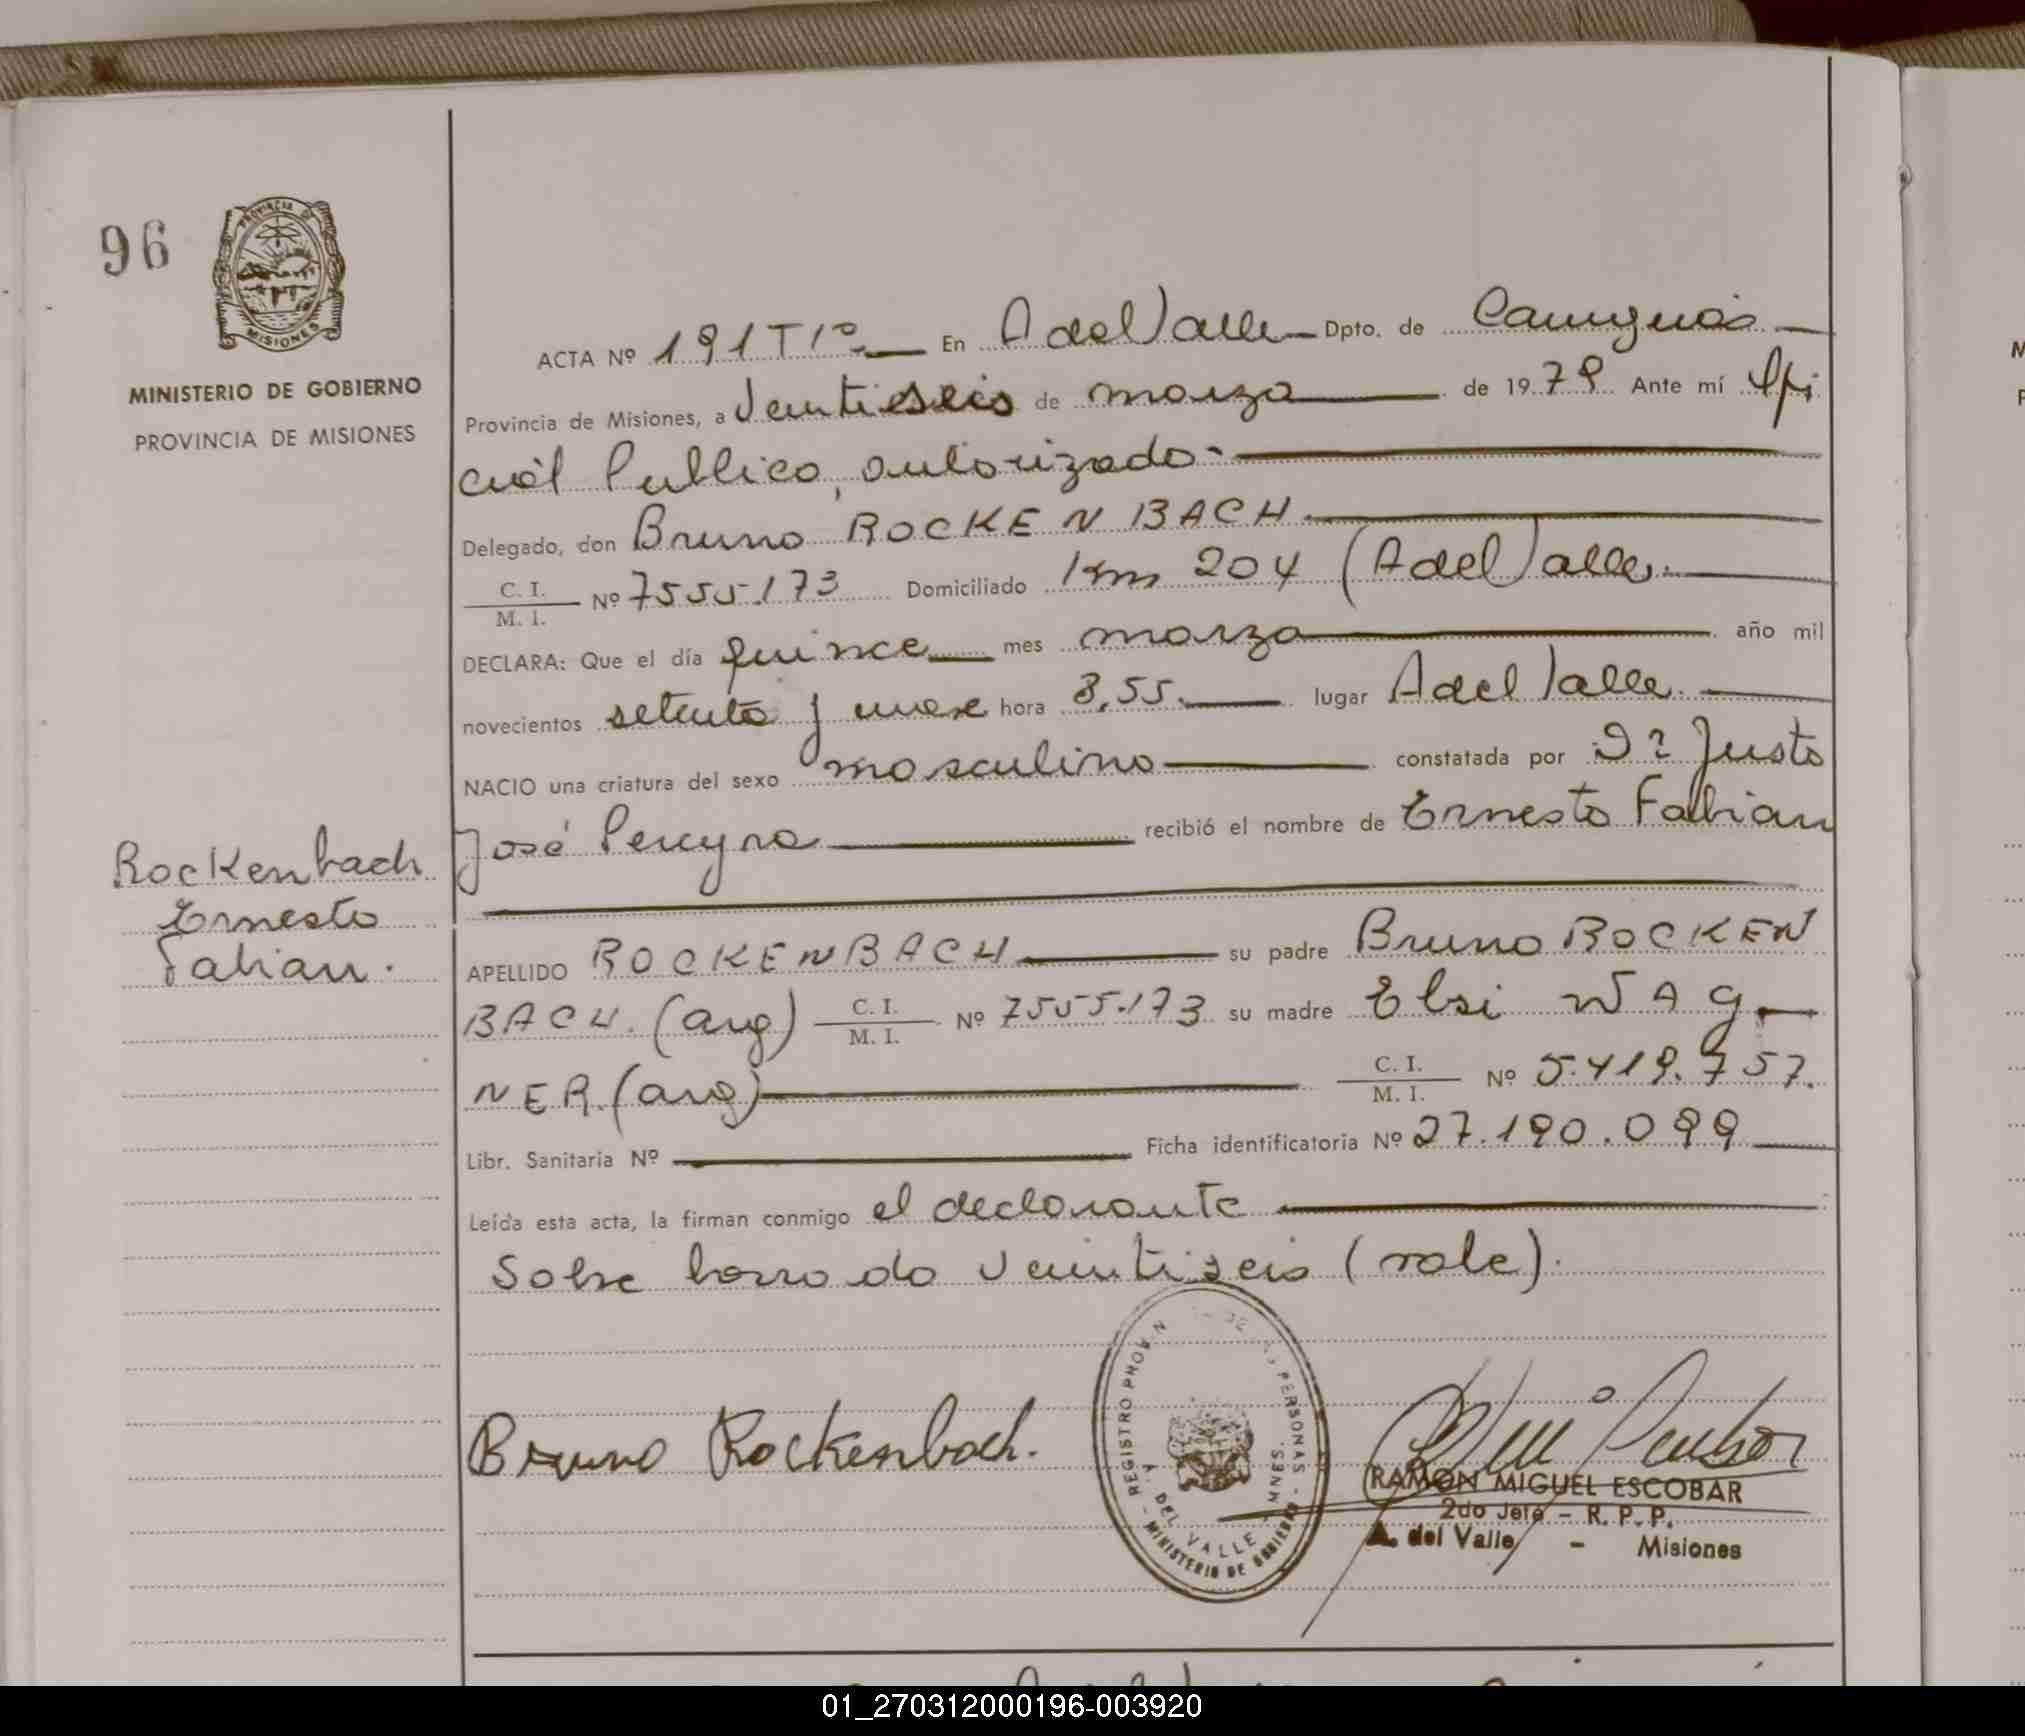 96
PROVINCIA DE
MISIONES
MINISTERIO DE GOBIERNO
PROVINCIA DE MISIONES
Rockenbach
Ernesto
Fabian.
ACTA Nº 191 T 1º En A del Valle Dpto. de Cainguás
Provincia de Misiones, a Veintiseis de marzo de 1979 Ante mí Ofi
cial Publico, autorizado-
Delegado, don Bruno ROCKENBACH
C. I.
M. I. Nº 7555.173 Domiciliado Km 204 (A del Valle.
DECLARA: Que el día quince mes marzo año mil
novecientos setenta y nueve hora 8,55. lugar A del Valle.
NACIO una criatura del sexo masculino constatada por Dr Justo
José Pereyra recibió el nombre de Ernesto Fabian
APELLIDO ROCKENBACH su padre Bruno ROCKEN
BACH. (arg) C. I.
M. I. Nº 7555.173 su madre Elsi WAG
NER (arg) C. I.
M. I. Nº 5.419.757.
Libr. Sanitaria Nº Ficha identificatoria Nº 27.190.099
Leída esta acta, la firman conmigo el declarante
Sobre borrado Veintiseis (vale).
Bruno Rockenbach.
REGISTRO PROVIN DE PERSONAS
A. DEL VALLE - MNES.
MINISTERIO DE GOBIERNO
RAMON MIGUEL ESCOBAR
2do Jefe - R. P. P.
A. del Valle - Misiones
01_270312000196-003920